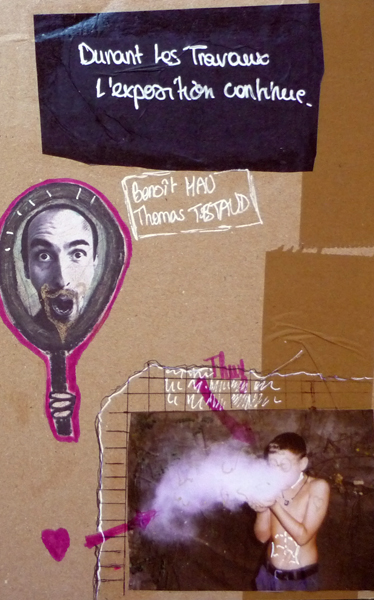 Durant les Travaux
L'exposition continue.
Benoît
Thomas